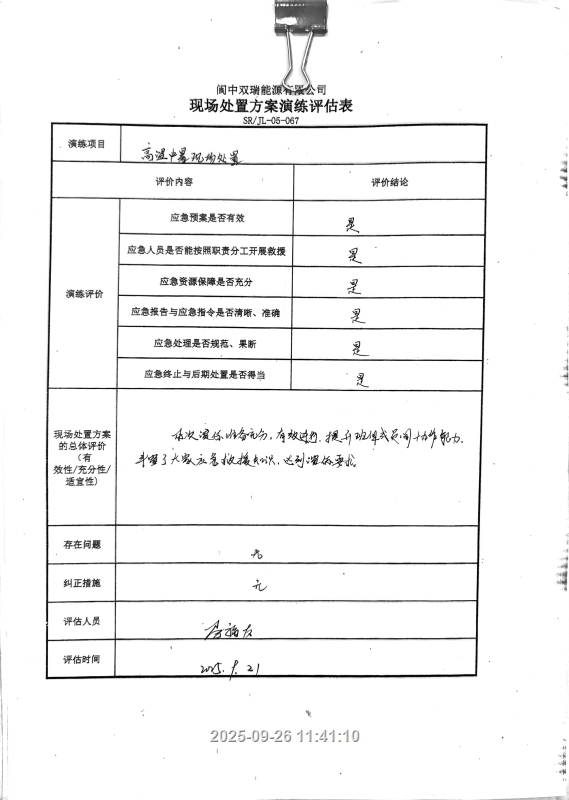 阆中双瑞能源有限公司
现场处置方案演练评估表
SR/JL-05-067
演练项目
高温中暑现场处置
评价内容
评价结论
演练评价
应急预案是否有效
是
应急人员是否能按照职责分工开展救援
是
应急资源保障是否充分
是
应急报告与应急指令是否清晰、准确
是
应急处理是否规范、果断
是
应急终止与后期处置是否得当
是
现场处置方案
的总体评价
(有
效性/充分性/
适宜性)
本次演练准备充分,有效进行,提升班组成员间协作能力,
丰富了大家应急救援知识,达到演练要求。
存在问题
无
纠正措施
无
评估人员
评估时间
2025.9.21
2025-09-26 11:41:10